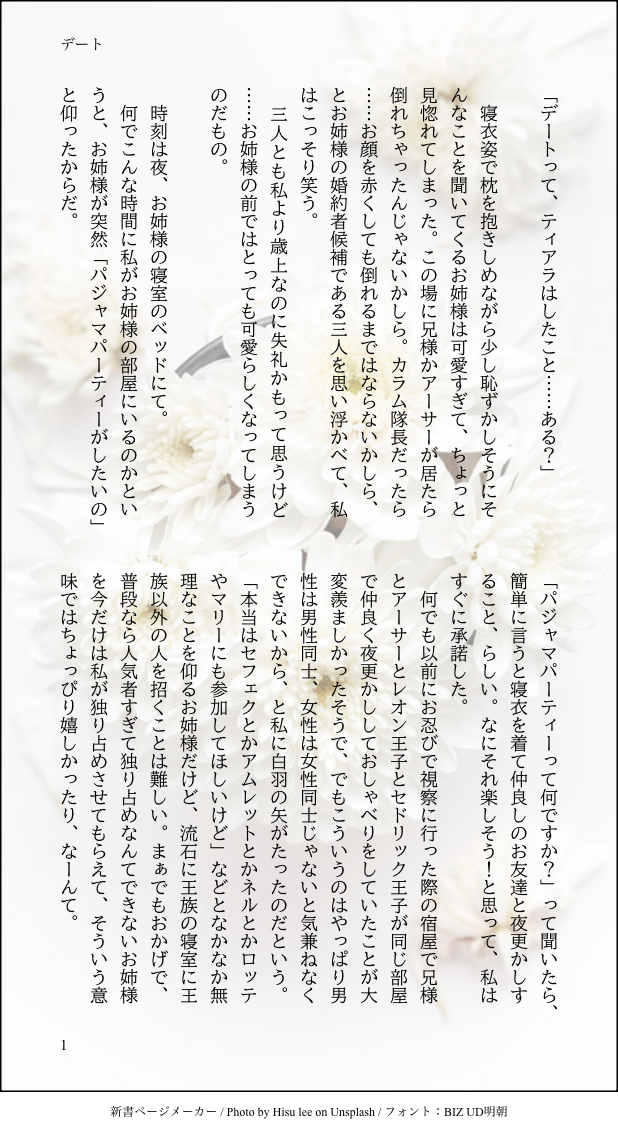 デート
「デートって、ティアラはしたこと……ある？」
　寝衣姿で枕を抱きしめながら少し恥ずかしそうにそ
んなことを聞いてくるお姉様は可愛すぎて、ちょっと
見惚れてしまった。この場に兄様かアーサーが居たら
倒れちゃったんじゃないかしら。カラム隊長だったら
……お顔を赤くしても倒れるまではならないかしら、
とお姉様の婚約者候補である三人を思い浮かべて、私
はこっそり笑う。
　三人とも私より歳上なのに失礼かもって思うけど
……お姉様の前ではとっても可愛らしくなってしまう
のだもの。
　時刻は夜、お姉様の寝室のベッドにて。
　何でこんな時間に私がお姉様の部屋にいるのかとい
うと、お姉様が突然「パジャマパーティーがしたいの」
と仰ったからだ。
「パジャマパーティーって何ですか？」って聞いたら、
簡単に言うと寝衣を着て仲良しのお友達と夜更かしす
ること、らしい。なにそれ楽しそう！と思って、私は
すぐに承諾した。
　何でも以前にお忍びで視察に行った際の宿屋で兄様
とアーサーとレオン王子とセドリック王子が同じ部屋
で仲良く夜更かししておしゃべりをしていたことが大
変羨ましかったそうで、でもこういうのはやっぱり男
性は男性同士、女性は女性同士じゃないと気兼ねなく
できないから、と私に白羽の矢がたったのだという。
「本当はセフェクとかアムレットとかネルとかロッテ
やマリーにも参加してほしいけど」などとなかなか無
理なことを仰るお姉様だけど、流石に王族の寝室に王
族以外の人を招くことは難しい。まぁでもおかげで、
普段なら人気者すぎて独り占めなんてできないお姉様
を今だけは私が独り占めさせてもらえて、そういう意
味ではちょっぴり嬉しかったり、なーんて。
1
新書ページメーカー / Photo by Hisu lee on Unsplash / フォント：BIZ UD明朝